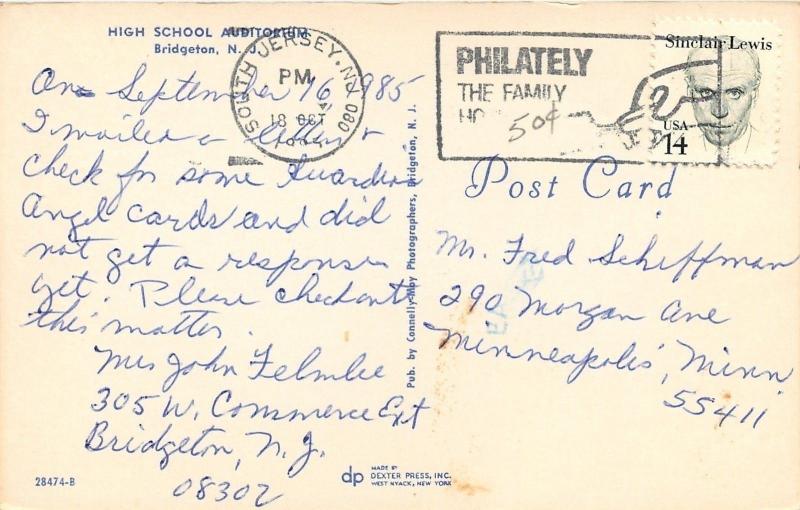 HIGH SCHOOL AUDITORIUM
Bridgeton, N. J.
On September 16 1985
I mailed a letter &
check for some Guardian
Angel cards and did
not get a response
yet. Please check onto
this matter.
Mrs John Felmlee
305 W. Commerce Ext
Bridgeton, N. J.
08302
28474-B
Pub. by Connelly-May Photographers, Bridgeton, N. J.
dp MADE BY
DEXTER PRESS, INC.
WEST NYACK, NEW YORK
SOUTH JERSEY, NJ 080
PM
18 OCT
PHILATELY
THE FAMILY
50¢
Sinclair Lewis
USA
14
Post Card
Mr. Fred Scheffman
290 Morgan Ave
Minneapolis, Minn
55411